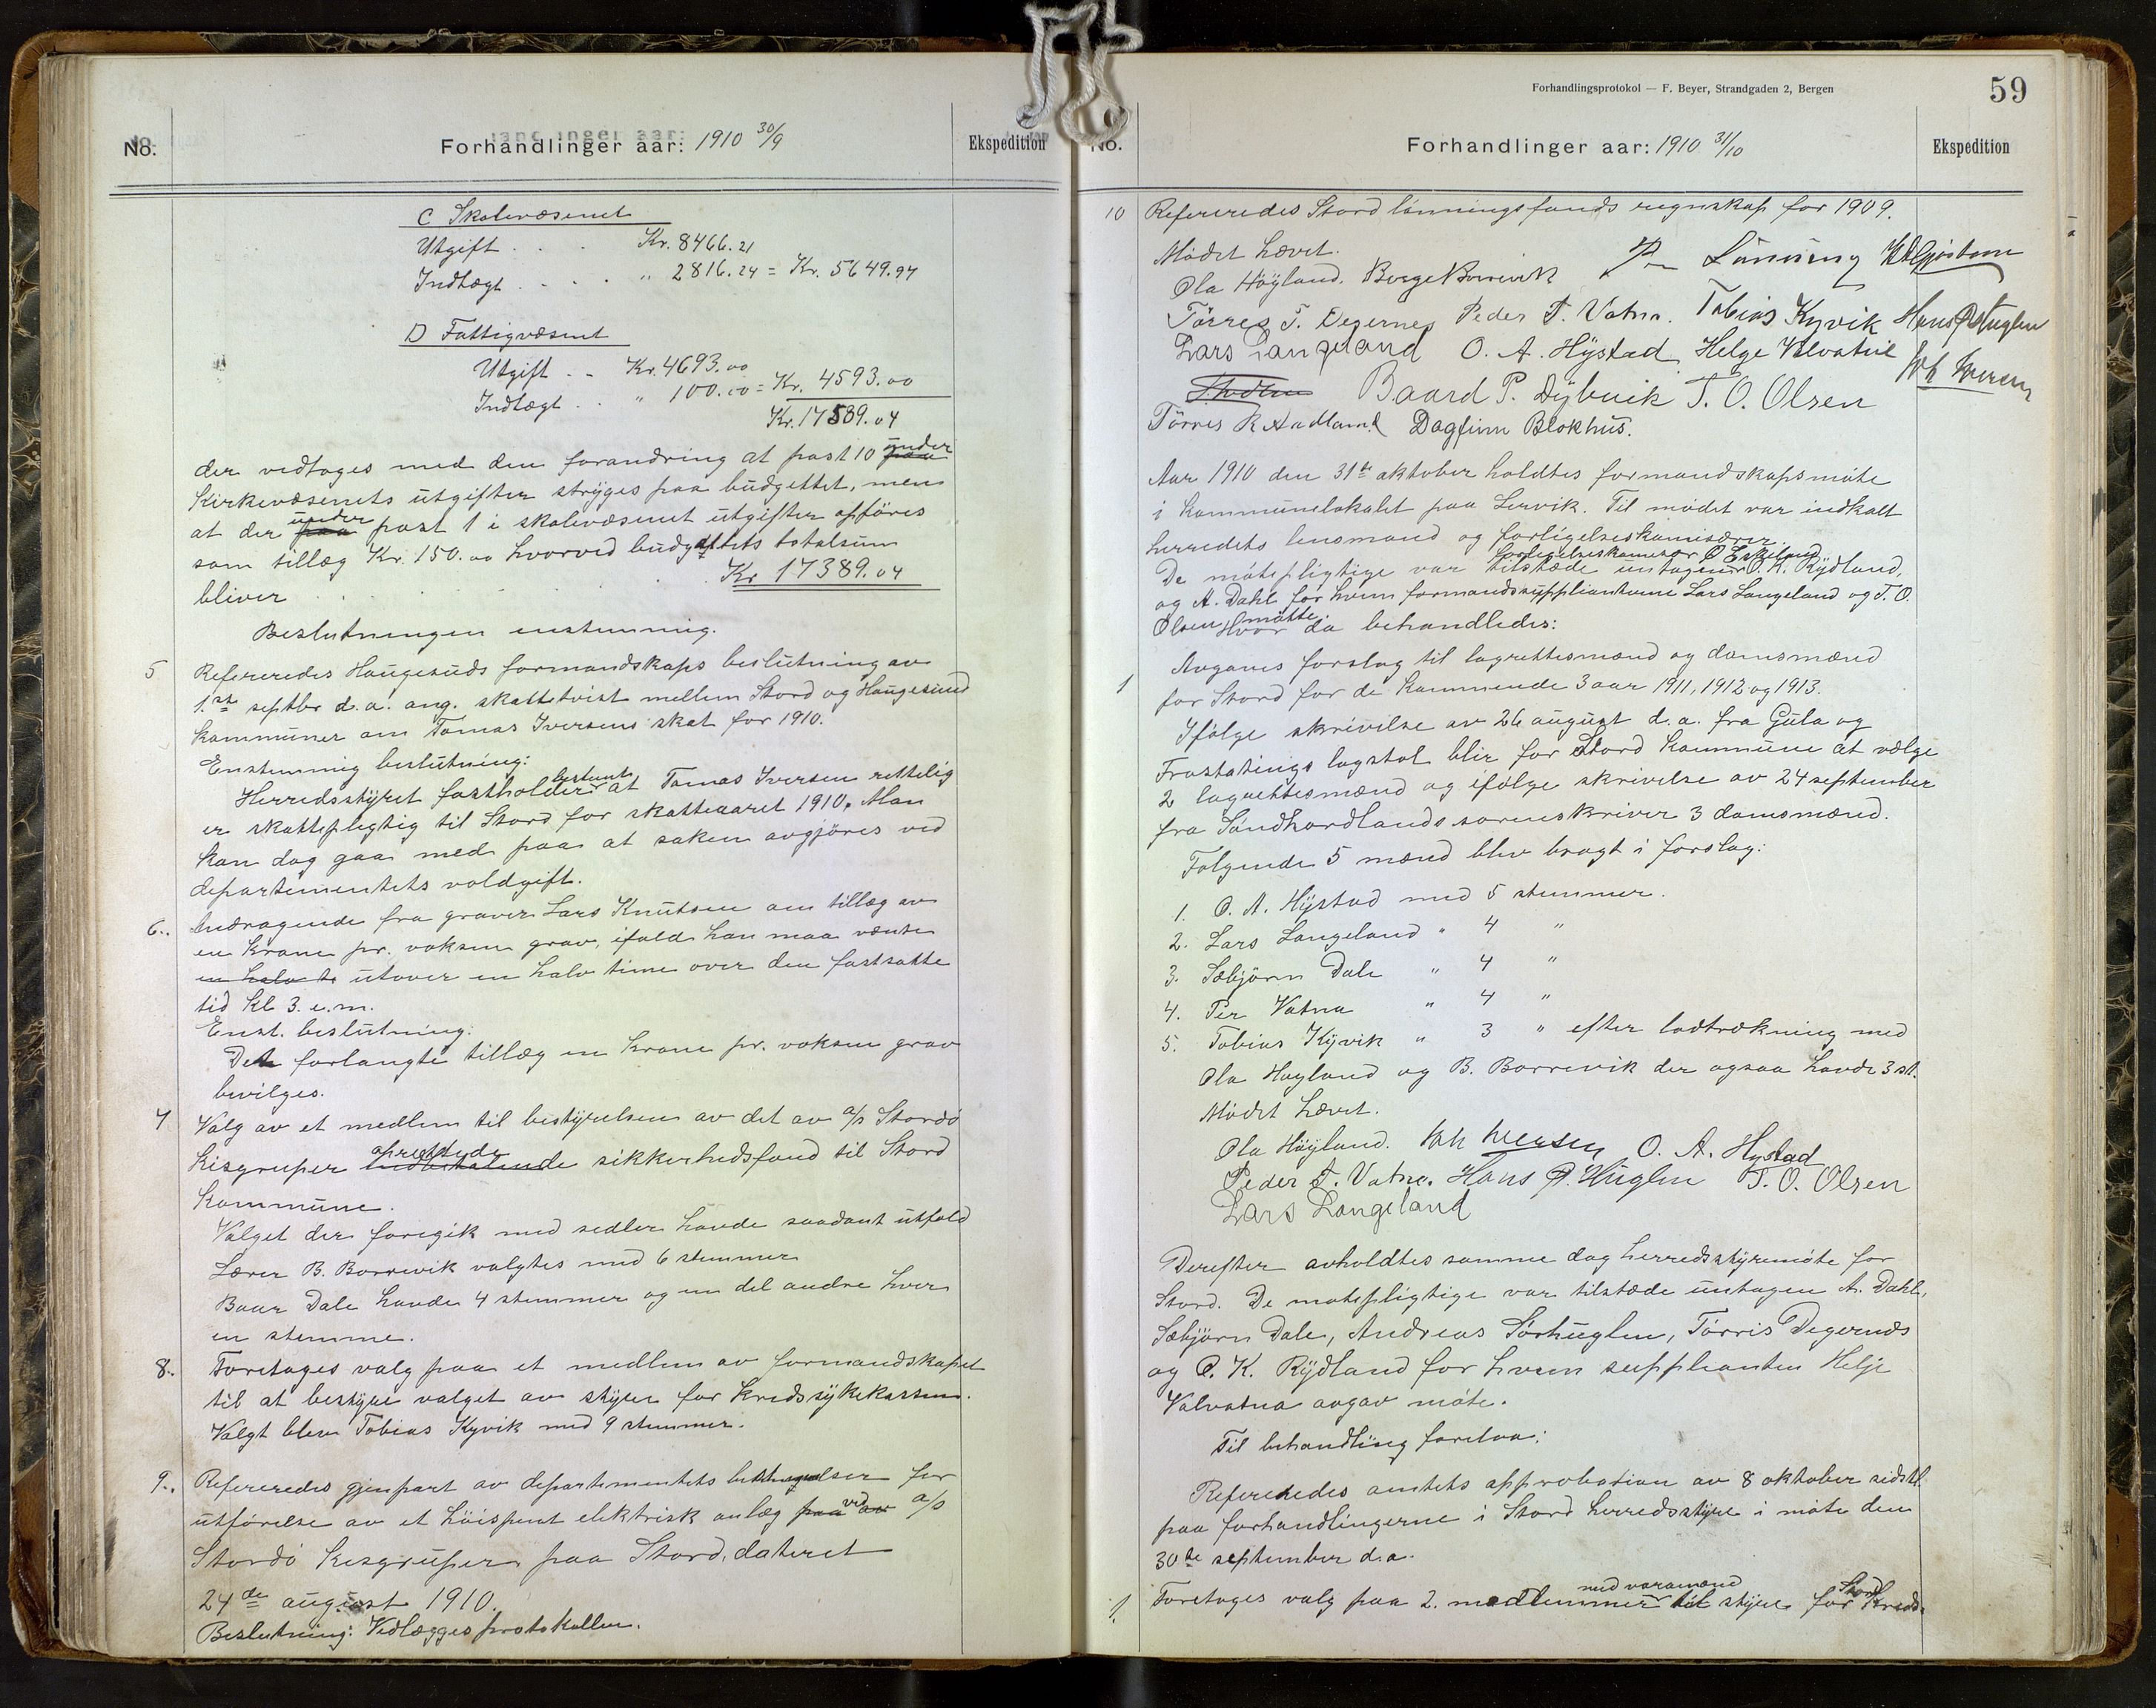 No.
Forhandlinger aar: 1910 30/9
Ekspedition
C Skolevæsenet
Utgift . . . Kr. 8466.21
Indtægt . . . . " 2816.24 = Kr. 5649.97
D Fattigvæsenet
Utgift . . Kr. 4693.00
Indtægt . . " 100.00 = Kr. 4593.00
Kr. 17539.04
der vedtages med den forandring at post 10 paa under
Kirkevæsenets utgifter stryges paa budgettet, men
at der paa under post 1 i skolevæsenet utgifter opføres
som tillæg Kr. 150.00 hvorved budgettets totalsum
bliver . . . . . . Kr 17389.04
Beslutningen enstemmig.
5 Refereredes Haugesunds formandskaps beslutning av
1ste septbr d.a. ang. skattetvist mellem Stord og Haugesund
kommuner om Tomas Iversens skat for 1910.
Enstemmig beslutning:
Herredsstyret fastholder bestemt at Tomas Iversen rettelig
er skattepligtig til Stord for skatteaaret 1910. Man
kan dog gaa med paa at saken avgjøres ved
departementets voldgift.
6. Andragende fra graver Lars Knutsen om tillæg av
en krone pr. voksen grav, ifald han maa vente
en halv ti utover en halv time over den fastsatte
tid Kl 3. e.m.
Enst. beslutning.
Det forlangte tillæg en krone pr. voksen grav
bevilges.
7 Valg av et medlem til bestyrelsen av det av a/s Stordø
Kisgruper indbetalende oprettede sikkerhedsfond til Stord
Kommune.
Valget der foregik med sedler havde saadant utfald
Lærer B. Borrevik valgtes med 6 stemmer
Baar Dale havde 4 stemmer og en del andre hver
en stemme.
8. Foretoges valg paa et medlem av formandskapet
til at bestyre valget av styre for kredssykekassen.
Valgt blev Tobias Kyvik med 9 stemmer.
9. Refereredes gjenpart av departementets betingelser for
utførelse av et høispent elektrisk anlæg paa ved av a/s
Stordø Kisgruper paa Stord, dateret
24de august 1910.
Beslutning: Vedlægges protokollen.
Forhandlingsprotokol — F. Beyer, Strandgaden 2, Bergen
59
No.
Forhandlinger aar: 1910 31/10
Ekspedition
10 Refereredes Stord lønningsfonds regnskap for 1909.
Mødet hævet.
Ola Høyland. Børge Borrevik Lønning
Tørres T. Degernes Peder T. Vatna. Tobias Kyvik Hans P. Huglen
Lars Langeland O. A. Hystad Helge Valvatne Joh Iversen
Baard P. Dybvik T. O. Olsen
Tørres R Aadland Dagfinn Blokhus.
Aar 1910 den 31te oktober holdtes formandskapsmøte
i kommunelokalet paa Lervik. Til mødet var indkalt
herredets lensmand og forligelseskomisærer.
De møtepligtige var tilstæde untagen forligelseskomesær O Eskeland O. K. Rydland,
og A. Dahl for hvem formandssupplianterne Lars Langeland og T. O.
Olsen møtte. Hvor da behandledes:
1 Avgaves forslag til lagrettesmænd og domsmænd
for Stord for de kommende 3 aar 1911, 1912 og 1913.
Ifølge skrivelse av 26 august d.a. fra Gula og
Frostatings lagstol blir for Stord Kommune at vælge
2 lagrettesmænd og ifølge skrivelse av 24 september
fra Søndhordlands sorenskriver 3 domsmænd.
Følgende 5 mænd blev bragt i forslag:
1. O. A. Hystad med 5 stemmer.
2. Lars Langeland " 4 "
3. Sæbjørn Dale " 4 "
4. Per Vatna " 4 "
5. Tobias Kyvik " 3 " efter lodtrækning med
Ola Høyland og B. Borrevik der ogsaa havde 3 st.
Mødet hævet.
Ola Høyland. Joh Iversen O. A. Hystad
Peder T. Vatna. Hans P. Huglen T. O. Olsen
Lars Langeland
Derefter avholdtes samme dag herredsstyremøte for
Stord. De møtepligtige var tilstæde untagen A. Dahl,
Sæbjørn Dale, Andreas Sørhuglen, Tørris Degernes
og O. K. Rydland for hvem supplianten Helje
Valvatna avgav møte.
Til behandling forelaa:
Refereredes amtets approbation av 8 oktober sidstl.
paa forhandlingerne i Stord herredsstyre i møte den
30de september d.a.
1. Foretoges valg paa 2. medlemmer med varamænd til styre for Stord Kreds-